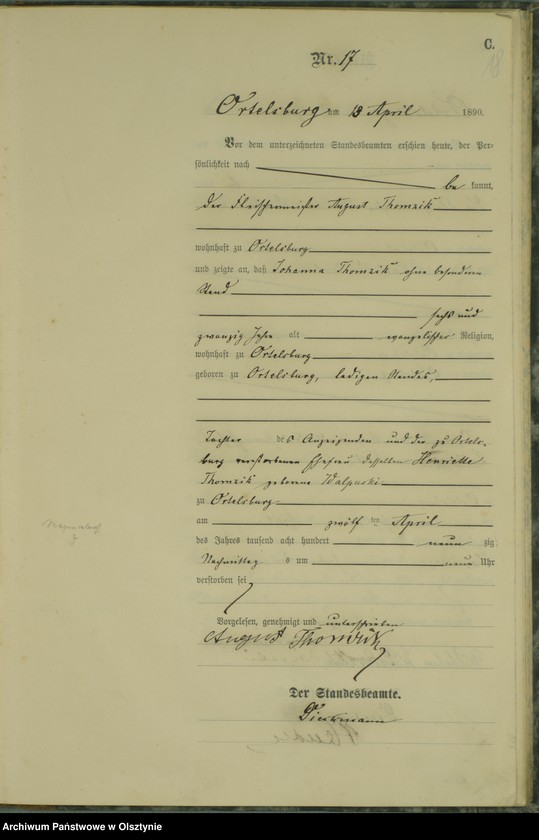 C.
18
Nr. 17
Ortelsburg am 13 April 1890.
Vor dem unterzeichneten Standesbeamten erschien heute, der Per-
sönlichkeit nach
be kannt,
der Fleischermeister August Thomzik
wohnhaft zu Ortelsburg
und zeigte an, daß Johanna Thomzik ohne besonderen
Stand
sechs und
zwanzig Jahre alt evangelischer Religion,
wohnhaft zu Ortelsburg
geboren zu Ortelsburg, ledigen Standes,
Tochter des Anzeigenden und der zu Ortels-
burg verstorbenen Ehefrau desselben Henriette
Thomzik geborene Walpuski
zu Ortelsburg
am zwölf ten April
des Jahres tausend acht hundert neun zig
Nachmittags um neun Uhr
verstorben sei
Vorgelesen, genehmigt und unterschrieben
August Thomzik
Der Standesbeamte.
Archiwum Państwowe w Olsztynie